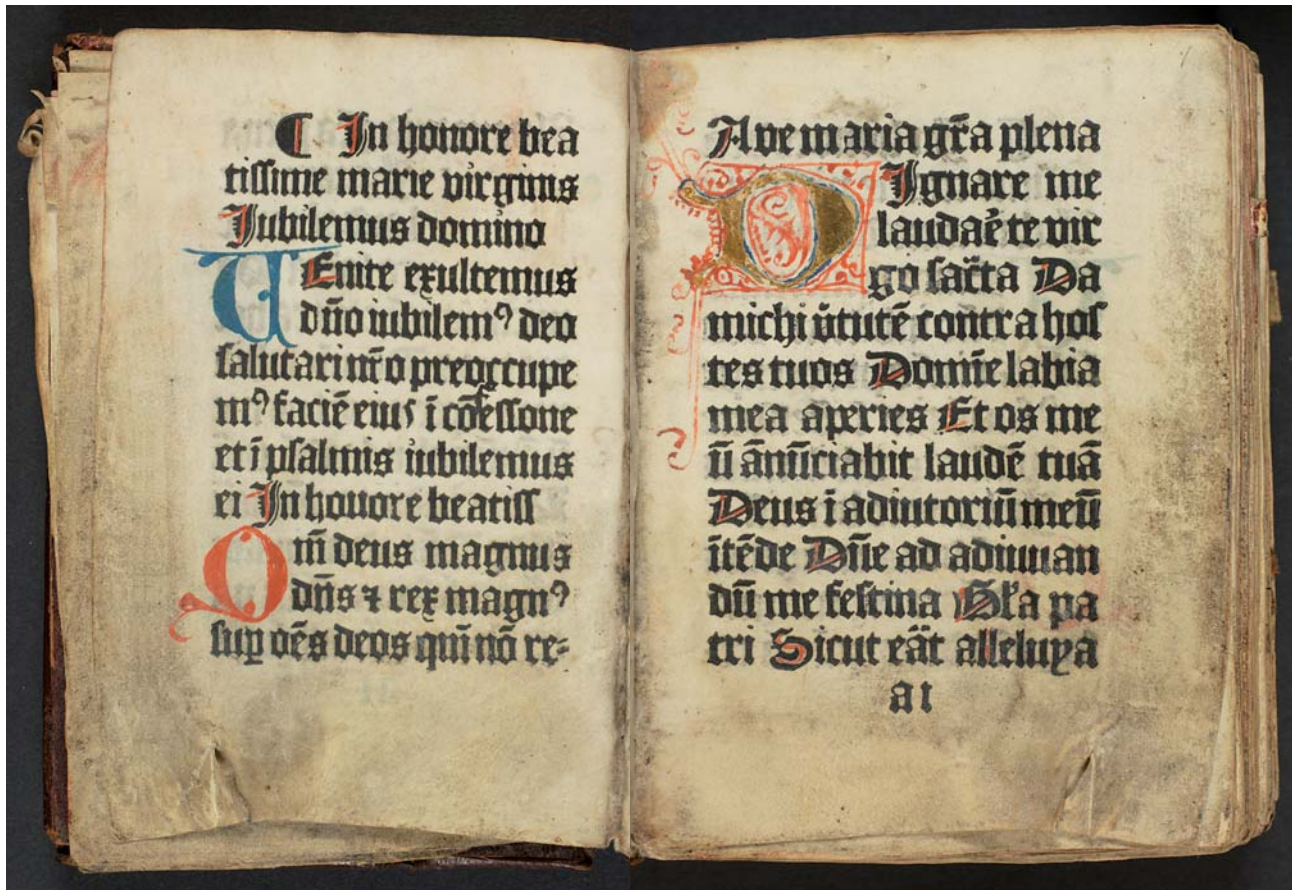 ¶ In honore bea
tissime marie virginis
Iubilemus domino
VEnite exultemus
dn̄o iubilemꝰ deo
salutari nr̄o preoccupe
mꝰ faciē eiuſ ī cōfessione
et ī psalmis iubilemus
ei In honore beatiss
Qm̄ deus magnus
dn̄s ⁊ rex magnꝰ
suꝑ oēs deos qm̄ nō re⸗
Ave maria gr̄a plena
DIgnare me
laudar̄e te vir
go sac̄ta Da
michi v̄tutē contra hos
tes tuos Domin̄e labia
mea aperies Et os me
ū an̄ūciabit laudē tuā
Deus ī adiutoriū meū
ītēde Dn̄e ad adiuuan
dū me festina Gl̄a pa
tri Sicut er̄at alleluya
a1